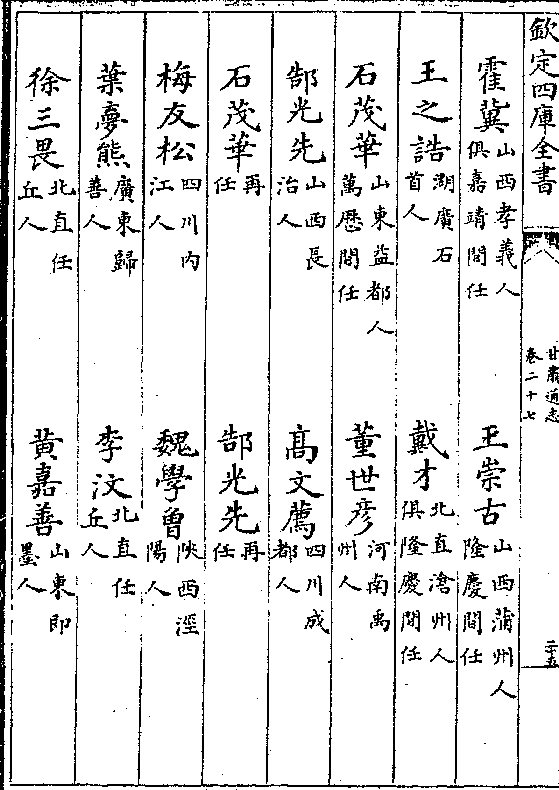 欽定四庫全書
甘肅通志
卷二十七
二十五
霍冀山西孝義人俱嘉靖間任 王崇古山西蒲州人隆慶間任
王之誥湖廣石首人 戴才北直滄州人俱隆慶間任
石茂華山東益都人萬歷間任 董世彦河南禹州人
郜光先山西長治人 髙文薦四川成都人
石茂華再任 郜光先再任
梅友松四川内江人 魏學曾陜西涇陽人
葉夢熊廣東歸善人 李汶北直任丘人
徐三畏北直任丘人 黄嘉善山東即墨人